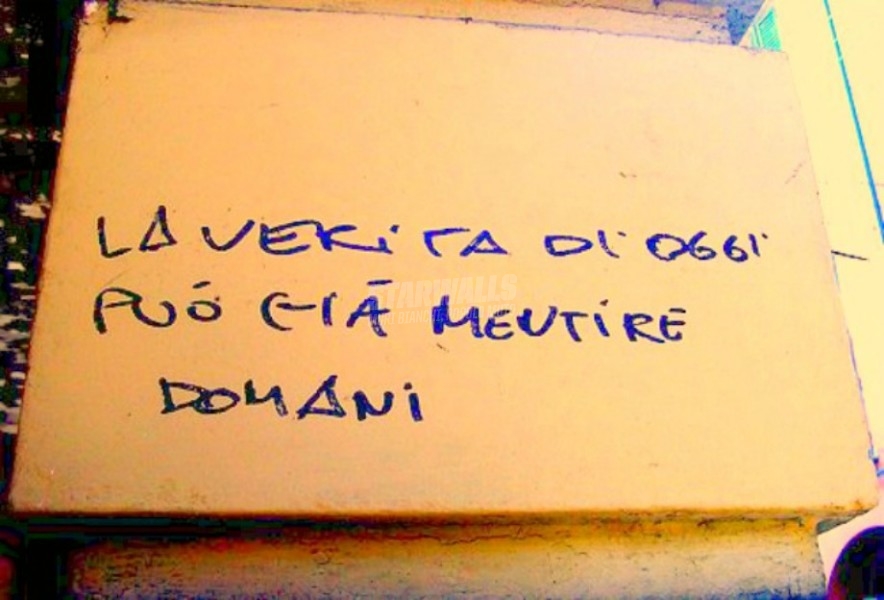 LA VERiTA Di OGGi
PUÓ GIÀ MENTiRE
DOMANi
STARWALLS